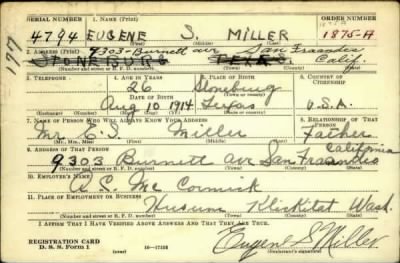 SERIAL NUMBER 1. NAME (Print) ORDER NUMBER
4794 EUGENE S. MILLER 1875-A
(First) (Middle) (Last)
177
2. ADDRESS (Print) 9303-Burnett ave San Frandes
STONEBURG TEXAS Calif.
(Number and street or R. F. D. number) (Town) (County) (State)
3. TELEPHONE 4. AGE IN YEARS 5. PLACE OF BIRTH 6. COUNTRY OF CITIZENSHIP
26 Stoneburg
DATE OF BIRTH (Town or county)
Aug 10 1914 Texas U.S.A.
(Exchange) (Number) (Mo.) (Day) (Yr.) (State or country)
7. NAME OF PERSON WHO WILL ALWAYS KNOW YOUR ADDRESS 8. RELATIONSHIP OF THAT PERSON
Mr. E. S. Miller Father
(Mr., Mrs., Miss) (First) (Middle) (Last)
9. ADDRESS OF THAT PERSON California
9303 Burnett ave San Frandes
(Number and street or R. F. D. number) (Town) (County) (State)
10. EMPLOYER'S NAME
S. Mc Cormick
11. PLACE OF EMPLOYMENT OR BUSINESS
Husum Klickitat Wash.
(Number and street or R. F. D. number) (Town) (County) (State)
I AFFIRM THAT I HAVE VERIFIED ABOVE ANSWERS AND THAT THEY ARE TRUE.
REGISTRATION CARD
D. S. S. Form 1 (over) 16—17105 Eugene S Miller
(Registrant's signature)